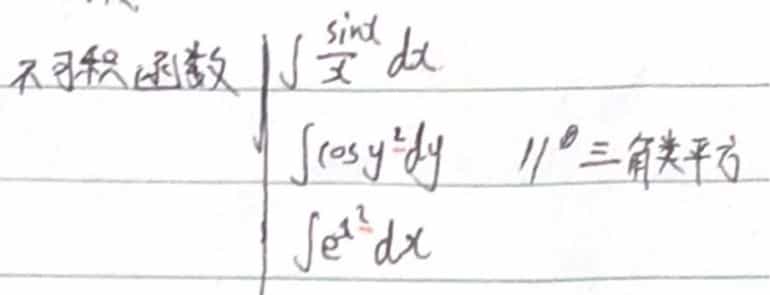 不可积函数 ∫ sinx/x dx
∫cosy²dy // θ 三角类平方
∫eˣ²dx